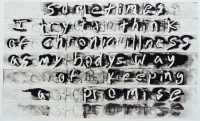 Sometimes
I try to think
of chronic illness
as my body's way
of keeping
a promise